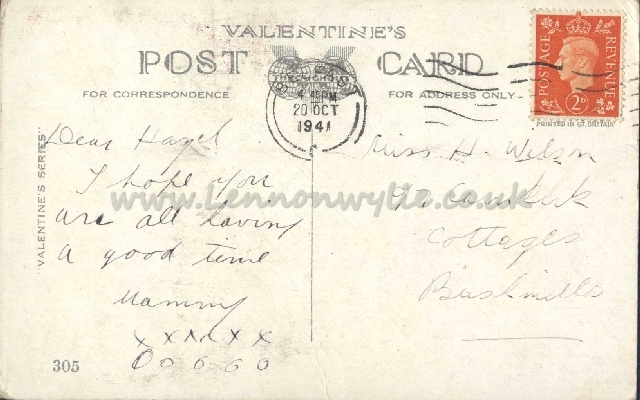 VALENTINE'S
POST CARD
THROUGHOUT
FOR CORRESPONDENCE
FOR ADDRESS ONLY
POSTAGE
REVENUE
2D
PRINTED IN GT. BRITAIN
4 PM
20 OCT
1941
"VALENTINE'S SERIES"
Dear Hazel
I hope you
are all having
a good time
Mammy
x x x x x x
O O O O O
305
Miss H. Wilson
Cottages
Bushmills
www.Lennonwylie.co.uk